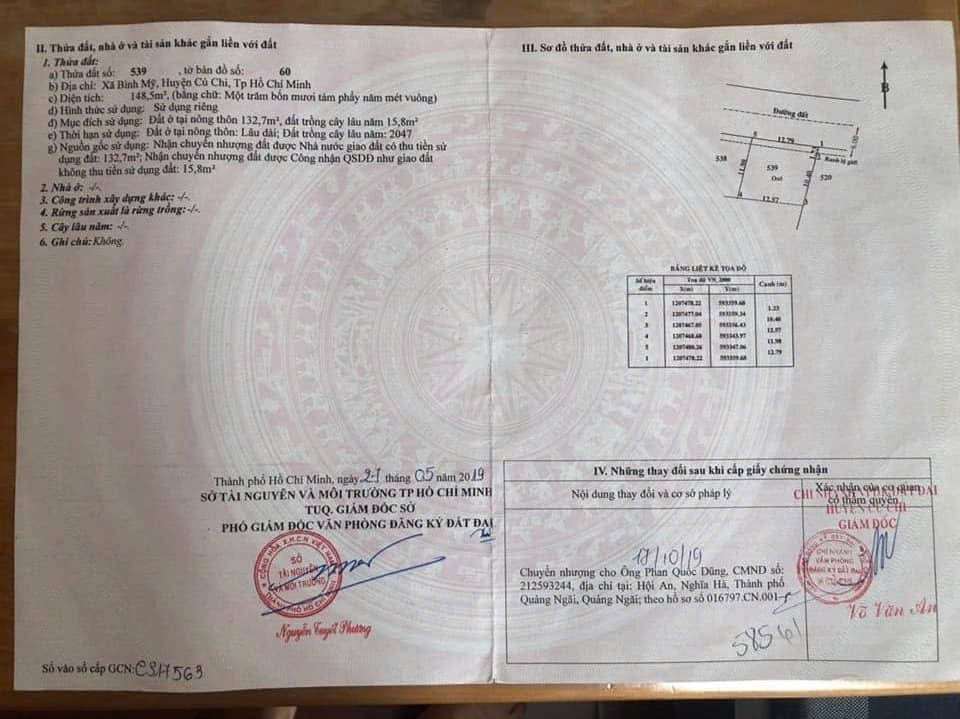 II. Thửa đất, nhà ở và tài sản khác gắn liền với đất
1. Thửa đất:
a) Thửa đất số: 539 , tờ bản đồ số: 60
b) Địa chỉ: Xã Bình Mỹ, Huyện Củ Chi, Tp Hồ Chí Minh
c) Diện tích: 148,5m², (bằng chữ: Một trăm bốn mươi tám phẩy năm mét vuông)
d) Hình thức sử dụng: Sử dụng riêng
đ) Mục đích sử dụng: Đất ở tại nông thôn 132,7m², đất trồng cây lâu năm 15,8m²
e) Thời hạn sử dụng: Đất ở tại nông thôn: Lâu dài; Đất trồng cây lâu năm: 2047
g) Nguồn gốc sử dụng: Nhận chuyển nhượng đất được Nhà nước giao đất có thu tiền sử
dụng đất: 132,7m²; Nhận chuyển nhượng đất được Công nhận QSDĐ như giao đất
không thu tiền sử dụng đất: 15,8m²
2. Nhà ở: -/-.
3. Công trình xây dựng khác: -/-.
4. Rừng sản xuất là rừng trồng: -/-.
5. Cây lâu năm: -/-.
6. Ghi chú: Không.
Thành phố Hồ Chí Minh, ngày 27 tháng 05 năm 2019
SỞ TÀI NGUYÊN VÀ MÔI TRƯỜNG TP HỒ CHÍ MINH
TUQ. GIÁM ĐỐC SỞ
PHÓ GIÁM ĐỐC VĂN PHÒNG ĐĂNG KÝ ĐẤT ĐAI
CỘNG HÒA X.H.C.N VIỆT NAM
SỞ
TÀI NGUYÊN
VÀ MÔI TRƯỜNG
THÀNH PHỐ HỒ CHÍ MINH
Nguyễn Tuyết Phương
Số vào sổ cấp GCN: CS17563
III. Sơ đồ thửa đất, nhà ở và tài sản khác gắn liền với đất
B
Đường đất
5 12.79 1
Ranh lộ giới
538
11.98
539
Ont
10.40
520
4 12.57 3
BẢNG LIỆT KÊ TỌA ĐỘ
Số hiệu điểm Toạ độ VN_2000 Cạnh (m)
X(m) Y(m)
1 1207478.22 593359.68
1.23
2 1207477.04 593359.34
10.40
3 1207467.05 593356.43
12.57
4 1207468.68 593343.97
11.98
5 1207480.26 593347.06
12.79
1 1207478.22 593359.68
IV. Những thay đổi sau khi cấp giấy chứng nhận
Nội dung thay đổi và cơ sở pháp lý
Xác nhận của cơ quan
có thẩm quyền
CHI NHÁNH VPĐK ĐẤT ĐAI
HUYỆN CỦ CHI
GIÁM ĐỐC
18/10/19
Chuyển nhượng cho Ông Phan Quốc Dũng, CMND số:
212593244, địa chỉ tại: Hội An, Nghĩa Hà, Thành phố
Quảng Ngãi, Quảng Ngãi; theo hồ sơ số 016797.CN.001
CHI NHÁNH
VĂN PHÒNG
ĐĂNG KÝ ĐẤT ĐAI
H. CỦ CHI
Võ Văn An
58561